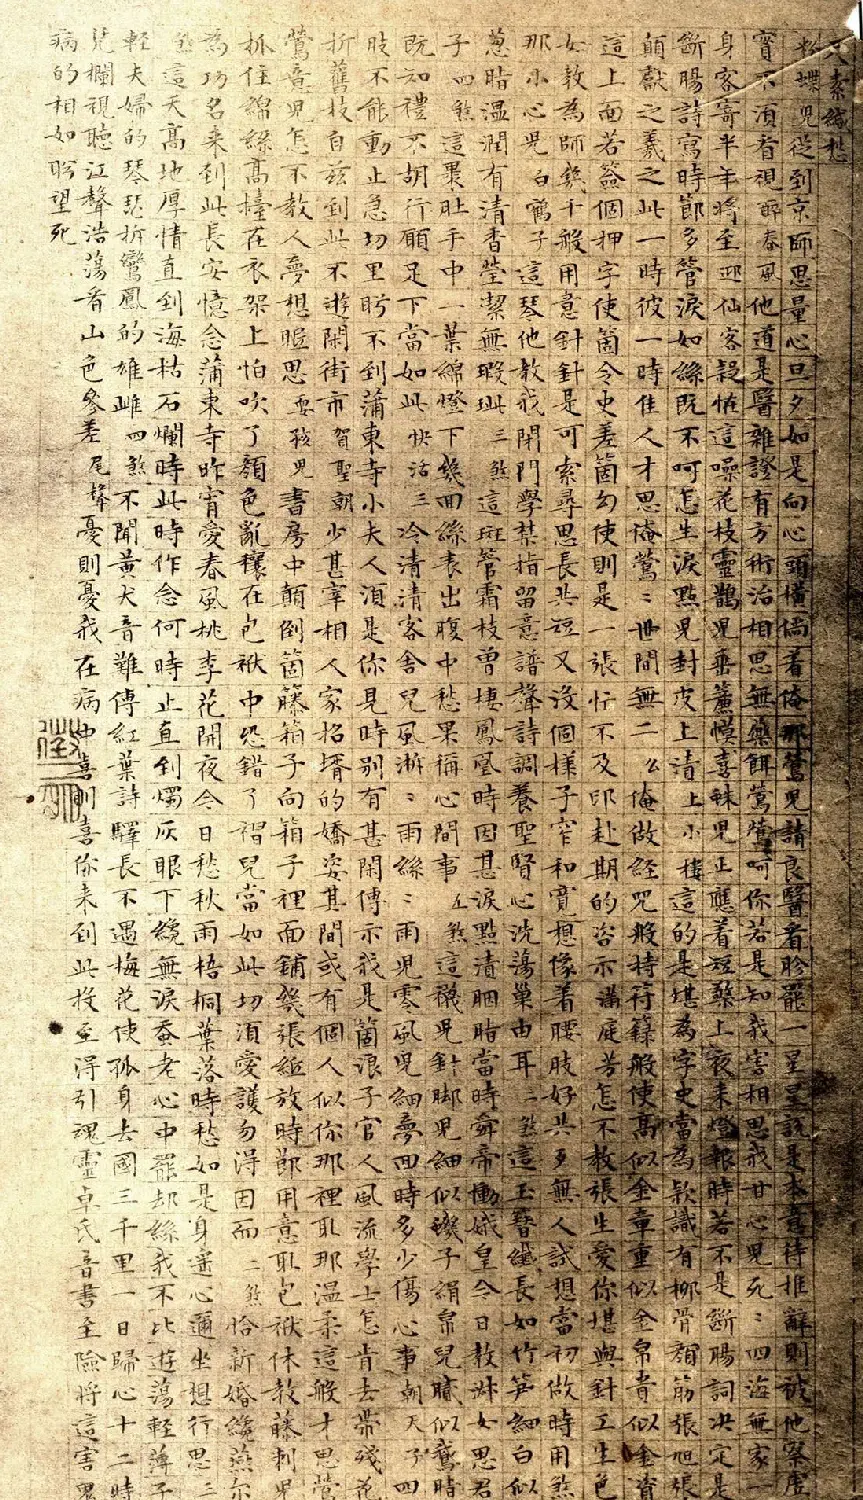 尺素緘愁
粉蝶兒從到京師思量心旦夕如是向心頭橫倘着俺那鶯兒請良醫看胗罷一星星說是本意待推辭則被他察虛
實不須看視醉春風他道是醫雜證有方術治相思無藥餌鶯鶯呵你若是知我害相思我甘心兒死〻四海無家一
身客寄半年將至迎仙客疑怪這噪花枝靈鵲兒垂簾幙喜蛛兒正應着短檠上夜來燈報時若不是斷腸詞決定是
斷腸詩寫時節多管淚如絲既不呵怎生淚點兒封皮上漬上小樓這的是堪為字史當為款識有柳骨顏筋張旭張
顛獻之羲之此一時彼一時佳人才思俺鶯〻世間無二么俺做經咒般持符籙般使高似金章重似金帛貴似金資
這上面若簽個押字使箇令史差箇勾使則是一張忙不及印赴期的咨示滿庭芳怎不教張生愛你堪與針工生色
女教為師幾十般用意針針是可索尋思長共短又沒個樣子窄和寬想像着腰肢好共歹無人試想當初做時用煞
那小心兒白鶴子這琴他教我閉門學禁指留意譜聲詩調養聖賢心洗蕩巢由耳二煞這玉簪纖長如竹筍細白似
蔥脂溫潤有清香瑩潔無瑕玼三煞這斑管霜枝曾棲鳳凰時因甚淚點漬胭脂當時舜帝慟娥皇今日教淑女思君
子四煞這裹肚手中一葉綿燈下幾回絲表出腹中愁果稱心間事五煞這襪兒針脚兒細似蟣子絹帛兒膩似鵞脂
既知禮不胡行願足下當如此快活三冷清清客舍兒風淅〻雨絲〻雨兒零風兒細夢回時多少傷心事朝天子四
肢不能動止急切里盻不到蒲東寺小夫人須是你見時別有甚閑傳示我是箇浪子官人風流學士怎肯去帶殘花
折舊枝自茲到此不遊閑街市賀聖朝少甚宰相人家招壻的嬌姿其間或有個人似你那裡取那溫柔這般才思鶯
鶯意兒怎不教人夢想眠思耍孩兒書房中顛倒箇籐箱子向箱子裡面鋪幾張紙放時節用意取包袱休教藤刺兒
抓住綿絲高擡在衣架上怕吹了顏色亂穰在包袱中恐錯了褶兒當如此切須愛護勿得因而二煞恰新婚纔燕尓
為功名來到此長安憶念蒲東寺昨宵愛春風桃李花開夜今日愁秋雨梧桐葉落時愁如是身遙心邇坐想行思三
煞這天高地厚情直到海枯石爛時此時作念何時止直到燭灰眼下纔無淚蚕老心中罷却絲我不比遊蕩輕薄子
輕夫婦的琴瑟拆鸞鳳的雄雌四煞不聞黃犬音難傳紅葉詩驛長不遇梅花使孤身去國三千里一日歸心十二時
凭欄視聽江聲浩蕩看山色參差尾聲憂則憂我在病中喜則喜你來到此投至得引魂靈卓氏音書至險將這害鬼
病的相如盼望死